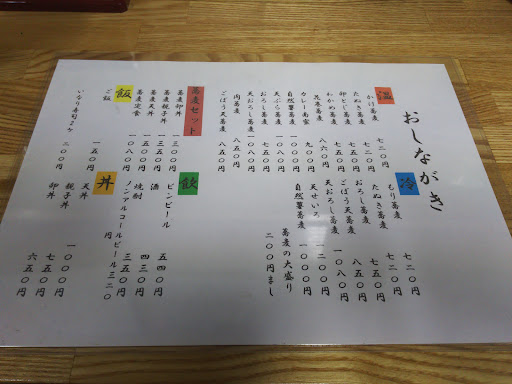 おしながき
温
かけ蕎麦 七二〇円
たぬき蕎麦 七二〇円
卵とじ蕎麦 七五〇円
わかめ蕎麦 七五〇円
花巻蕎麦 八六〇円
カレー南蛮 九〇〇円
自然薯蕎麦 一〇〇〇円
天ぷら蕎麦 一〇八〇円
おろし蕎麦 七五〇円
天おろし蕎麦 一〇八〇円
肉蕎麦 八五〇円
ごぼう天蕎麦 八五〇円
蕎麦セット
蕎麦卵丼 一三〇〇円
蕎麦親子丼
蕎麦天丼 一三五〇円
蕎麦定食 一〇八〇円
飯
ご飯 一五〇円
いなり寿司2ケ 二〇〇円
冷
もり蕎麦 七二〇円
たぬき蕎麦 七二〇円
おろし蕎麦 七五〇円
ごぼう天蕎麦 八五〇円
天おろし蕎麦 一〇八〇円
天せいろ 一二〇〇円
自然薯蕎麦 一〇〇〇円
蕎麦の大盛り 二〇〇円まし
飲
ビンビール 五四〇円
酒 四三〇円
焼酎 三五〇円
ノンアルコールビール 三二〇円
丼
天丼 一〇〇〇円
親子丼 七五〇円
卵丼 六五〇円